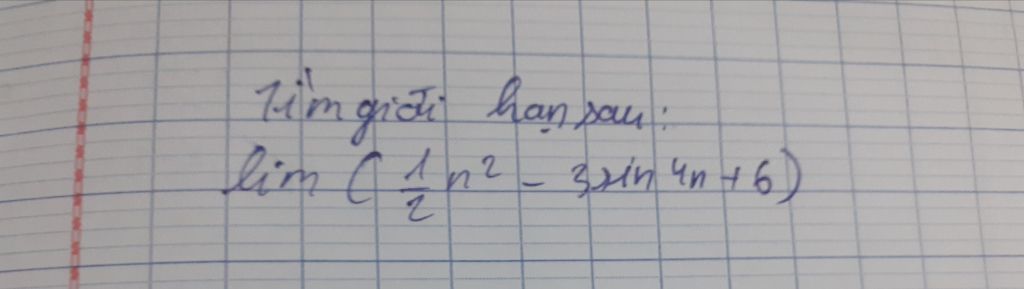 Tìm giới hạn sau:
lim ( 1/2 n² - 3sin 4n + 6)